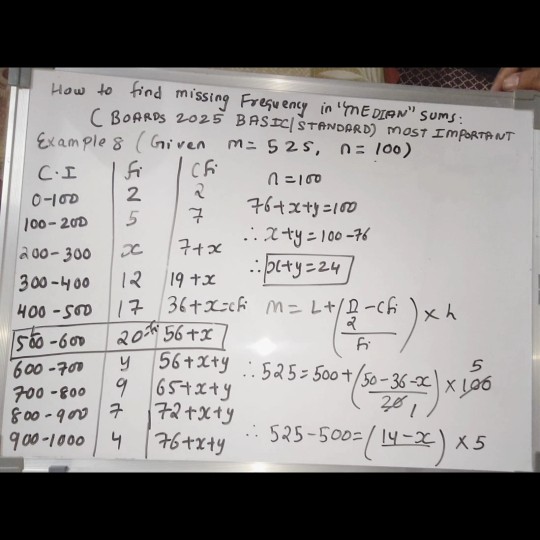 How to find missing Frequency in "MEDIAN" sums:
(BOARDS 2025 BASIC/STANDARD) MOST IMPORTANT
Example 8 (Given m=525, n=100)
C.I fi Cfi
0-100 2 2
100-200 5 7
200-300 x 7+x
300-400 12 19+x
400-500 17 36+x=cfi
500-600 20-fi 56+x
600-700 y 56+x+y
700-800 9 65+x+y
800-900 7 72+x+y
900-1000 4 76+x+y
n=100
76+x+y=100
∴ x+y=100-76
∴ x+y=24
m = L+(n/2-cfi/fi) x h
∴ 525=500+(50-36-x/20 1) x 100 5
∴ 525-500=(14-x) x 5